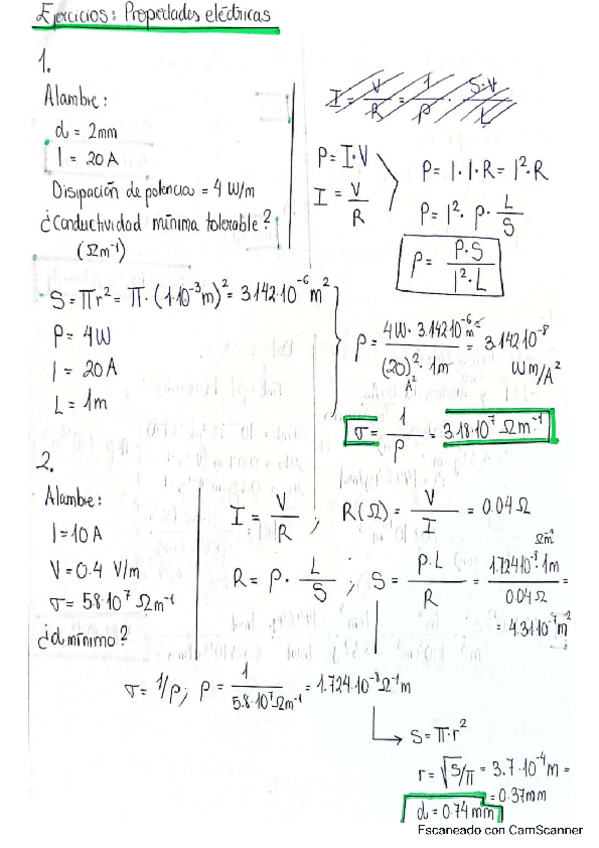 Ejercicios: Propiedades eléctricas
1.
Alambre:
d = 2mm
I = 20 A
Disipación de potencia = 4 W/m
¿Conductividad mínima tolerable?
(Ωm⁻¹)
I = V/R = 1/ρ · S·V/L
P = I·V
I = V/R
P = I·I·R = I²·R
P = I²·ρ·L/S
ρ = P·S / I²·L
S = πr² = π·(1·10⁻³m)² = 3.142·10⁻⁶ m²
P = 4W
I = 20 A
L = 1m
ρ = 4W·3.142·10⁻⁶ m² / (20)² A²·1m = 3.142·10⁻⁸ W m/A²
σ = 1/ρ = 3.18·10⁷ Ωm⁻¹
2.
Alambre:
I = 10 A
V = 0.4 V/m
σ = 5.8·10⁷ Ωm⁻¹
¿d mínimo?
I = V/R ; R(Ω) = V/I = 0.04 Ω
R = ρ·L/S ; S = ρ·L/R = 1.724·10⁻⁸ Ωm⁻¹·1m / 0.04 Ω =
= 4.31·10⁻⁷ m²
σ = 1/ρ ; ρ = 1 / 5.8·10⁷ Ωm⁻¹ = 1.724·10⁻⁸ Ω⁻¹m
S = π·r²
r = √S/π = 3.7·10⁻⁴ m =
= 0.37mm
d = 0.74 mm
Escaneado con CamScanner